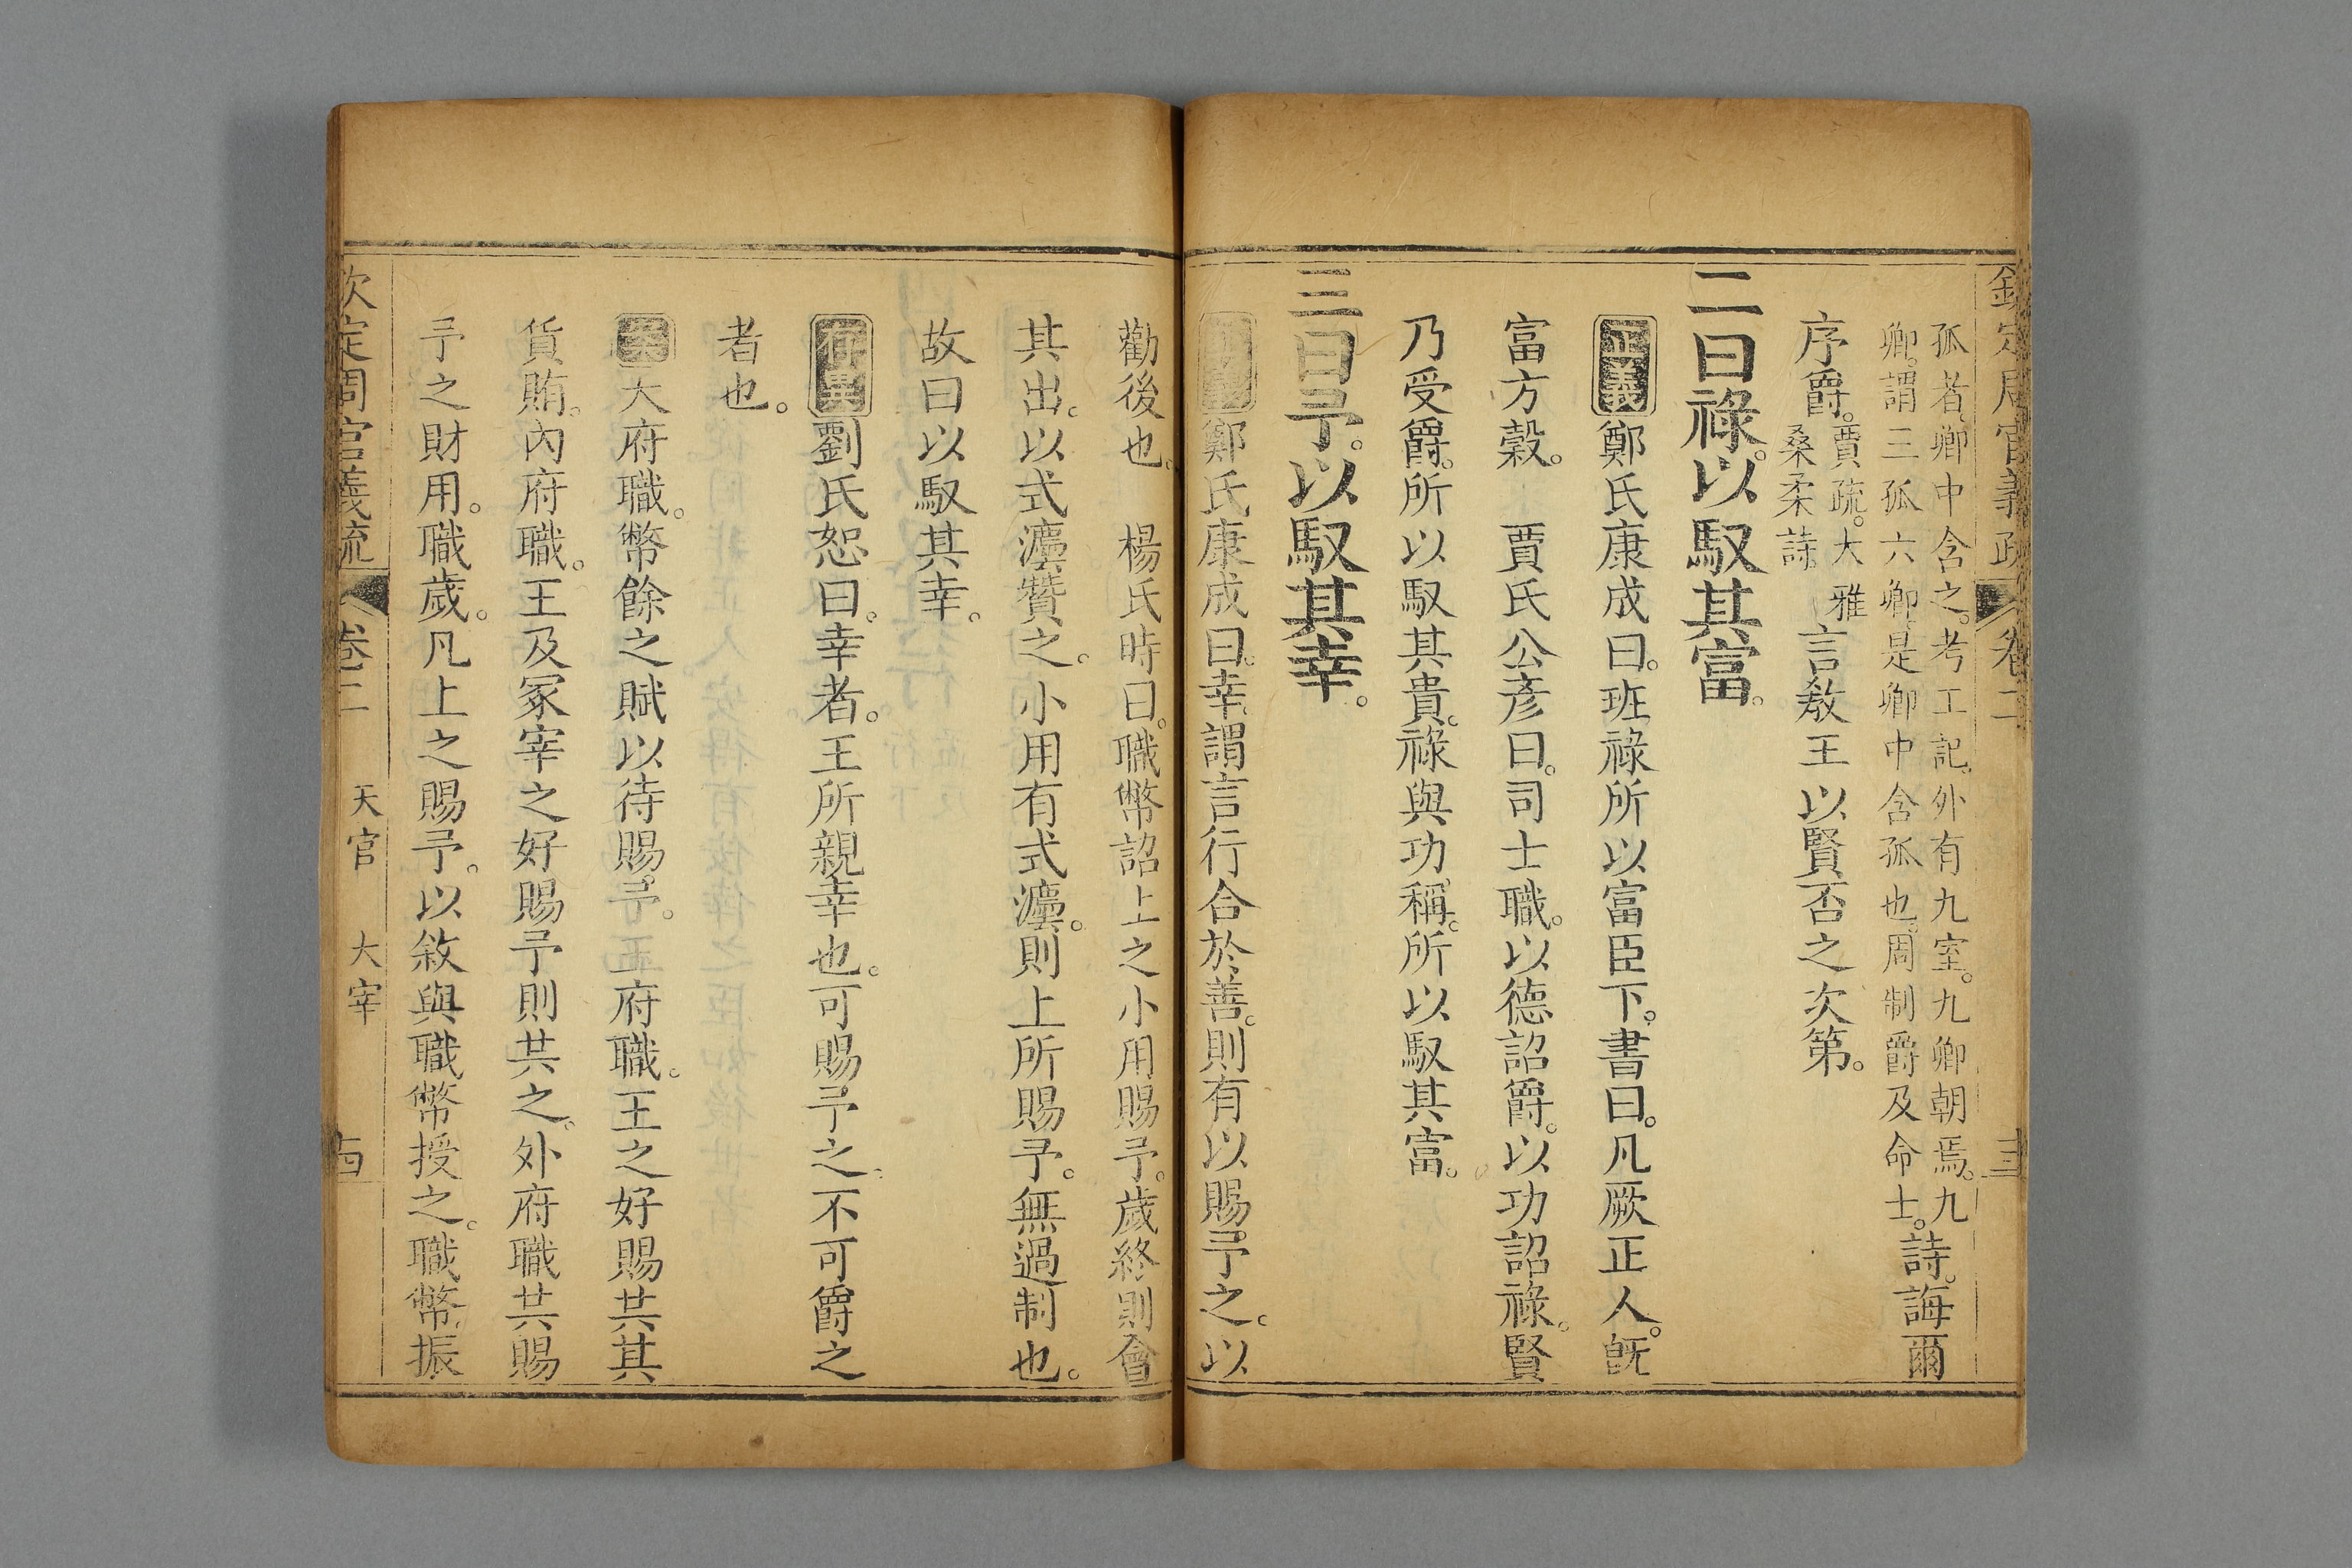 欽定周官義疏 卷二
孤者卿中含之。考工記。外有九室。九卿朝焉。九
卿。謂三孤六卿。是卿中含孤也。周制爵及命士。詩。誨爾
序爵。賈疏。大雅桑柔詩。言敎王以賢否之次第。
二曰祿。以馭其富。
正義鄭氏康成曰。班祿所以富臣下。書曰。凡厥正人。旣
富方穀。 賈氏公彥曰。司士職。以德詔爵。以功詔祿。賢
乃受爵。所以馭其貴。祿與功稱。所以馭其富。
三曰予。以馭其幸。
鄭氏康成曰。幸謂言行合於善。則有以賜予之。以
勸後也。 楊氏時曰。職幣詔上之小用賜予。歲終則會
其出。以式灋贊之。小用有式灋。則上所賜予。無過制也。
故曰以馭其幸。
存異劉氏恕曰。幸者。王所親幸也。可賜予之。不可爵之
者也。
案大府職。幣餘之賦以待賜予。玉府職。王之好賜共其
貨賄。內府職。王及冢宰之好賜予則共之。外府職共賜
予之財用。職歲。凡上之賜予。以敘與職幣授之。職幣振
欽定周官義疏 卷二 天官 大宰 十四